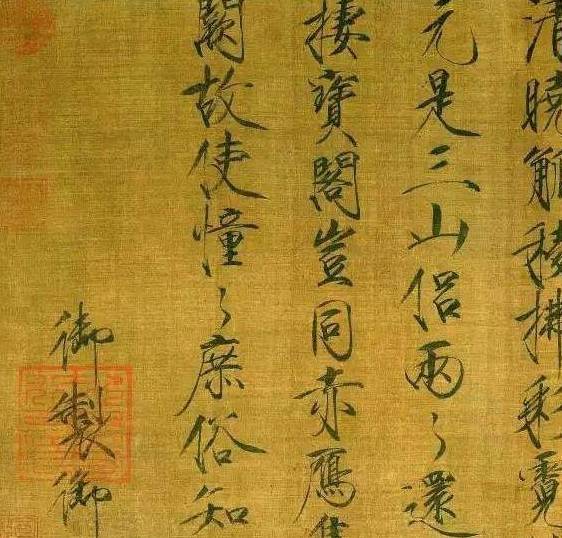 清曉觚稜拂彩霓
元是三山侣兩〻還
棲寶閣豈同赤鴈集
闕故使憧〻庶俗知
御製御